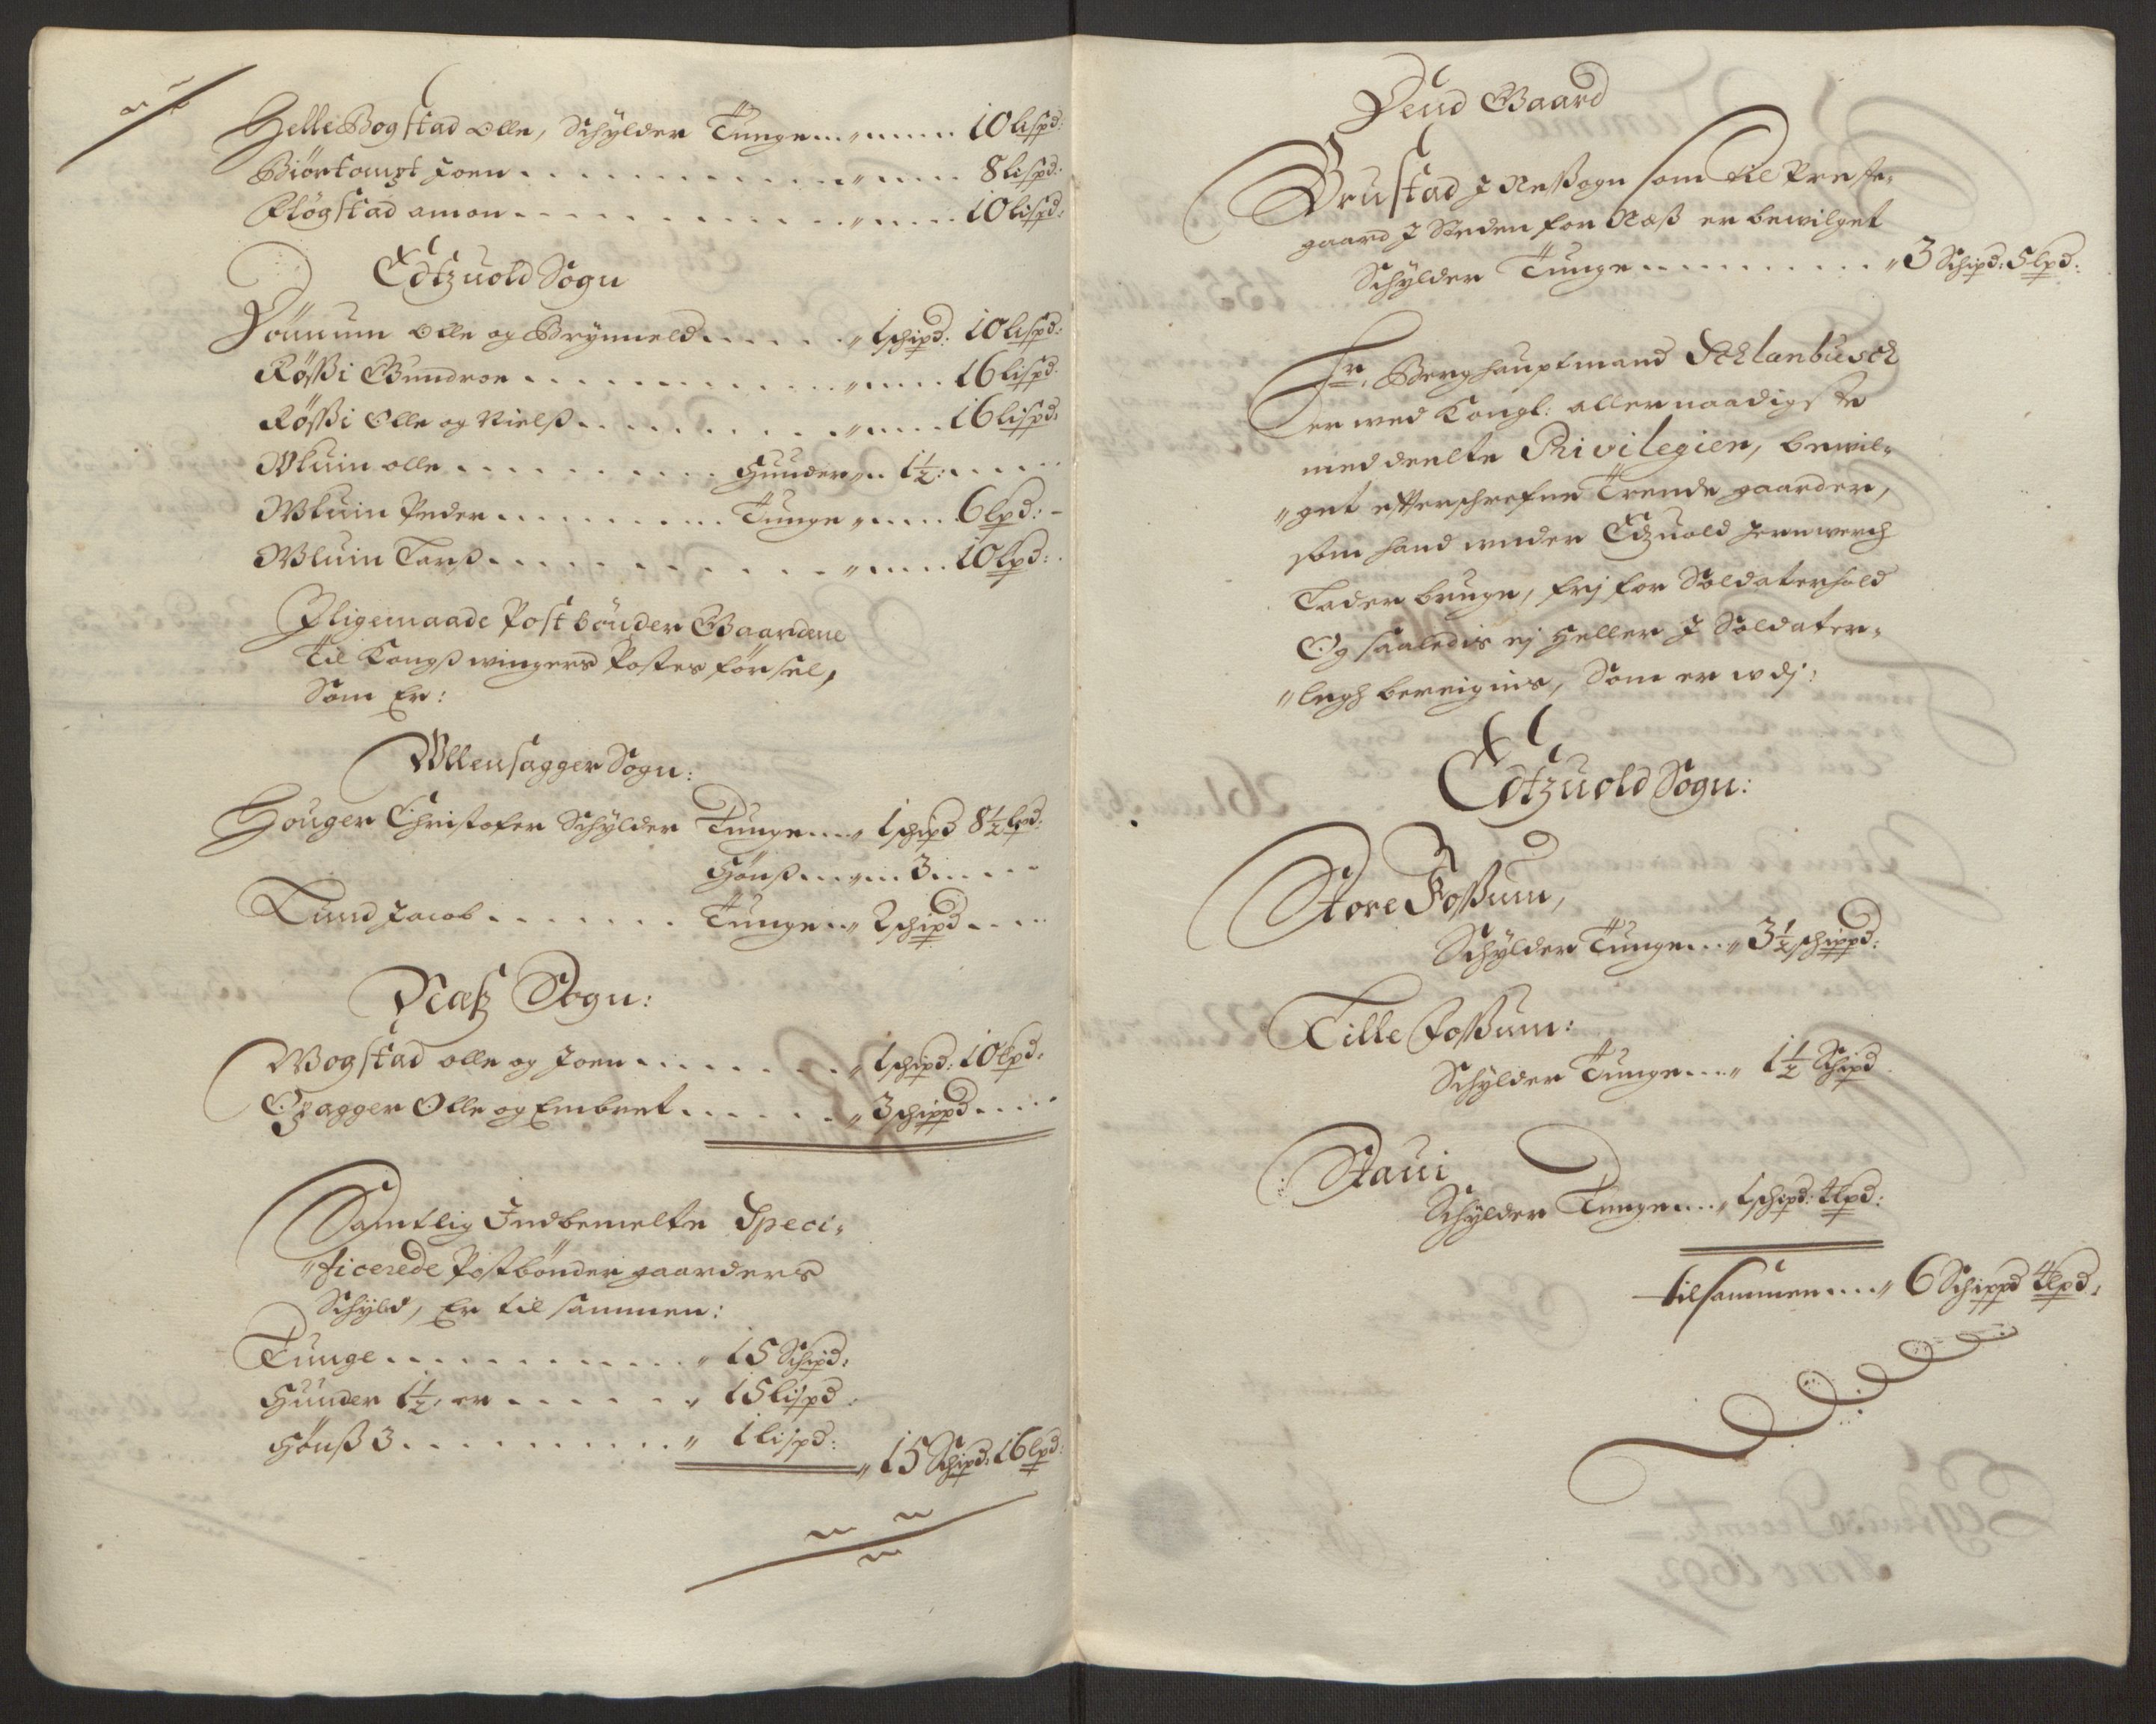 Helle Bogstad Olle, Schylder Tunge . . . „ . . . . 10 lispd:
Biörtomgt Joen . . . . „ . . . . 8 lispd:
Fløgstad Amon . . . . „ . . . . 10 lispd:
Edtzuold Sogn
Dönnum Olle og Brynneld . . . . „ 1 schipd: 10 lispd:
Røssi Gundror . . . . „ . . . . 16 lispd
Røssi Olle og Nielss . . . . „ . . . . 16 lispd:
Wluin olle . . . . Huuder „ . . 1½: . . . .
Wluin Peder . . . . Tunge „ . . . . 6 lpd: -
Wluin Larss . . . . „ . . . . 10 lpd:
Jligemaade Postbönder Gaardene
til Kongsswingers Postes förssel,
Som Er:
Wllensagger Sogn:
Houger Christofer Schylder Tunge . . . „ 1 schipd 8½ lpd:
Hönss . . . „ . . . 3 . . . .
Lund Jacob . . . . Tunge . . „ 2 schipd . . . .
Næss Sogn:
Wogstad olle og Joen . . . . „ 1 schipd: 10 lpd:
Opagger Olle og Embret . . . . „ 3 schippd . . . .
Samtlig Indbemelte Speci„
„ficerede Postbönder gaarders
Schyld, Er til sammen:
Tunge . . . . „ 15 Schipd:
Huuder 1½, er . . . . „ 15 lispd:
Hönss 3 . . . . „ 1 lispd:
„ 15 Schipd: 16 lpd:
Deud Gaard
Brustad J Nessogn som til Preste„
gaard J Steden for Næss er bewilget
Schylder Tunge . . . . „ 3 Schipd: 5 lpd:
Hr. Berghauptmand Schlanbusch
er med Kongl: allernaadigste
meddeelte Privilegier, bewil„
„get effterschrefne Trende gaarder,
som hand under Edzuold Jernwerch
Lader bruge, frj for Soldaterhold
Og saaledis ej Heller J Soldater„
„legh bereignis, Som er wdj:
Edtzuold Sogn:
Store Fossum,
Schylder Tunge . . . „ 3½ schippd:
Lille Fossum:
Schylder Tunge . . . „ 1½ Schipd
Staui
Schylder Tunge . . . „ 1 schipd: 4 lpd:
tilsammen . . . . „ 6 Schippd 4 lpd: